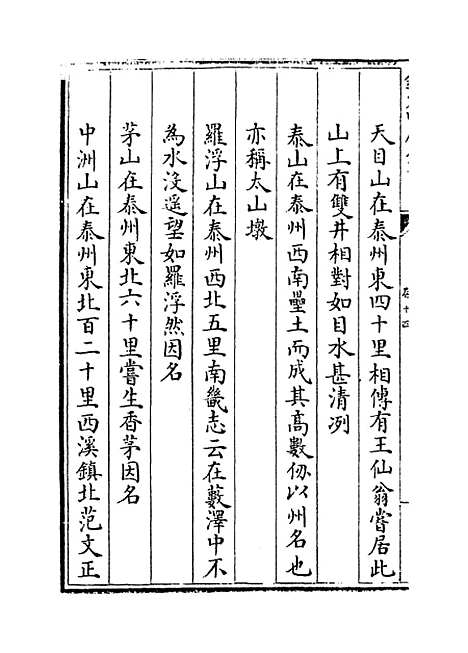 天目山在泰州東四十里相傳有王仙翁嘗居此
山上有雙井相對如目水甚清冽
泰山在泰州西南壘土而成其髙數仭以州名也
亦稱太山墩
羅浮山在泰州西北五里南畿志云在藪澤中不
為水没遥望如羅浮然因名
茅山在泰州東北六十里嘗生香茅因名
中洲山在泰州東北百二十里西溪鎮北范文正